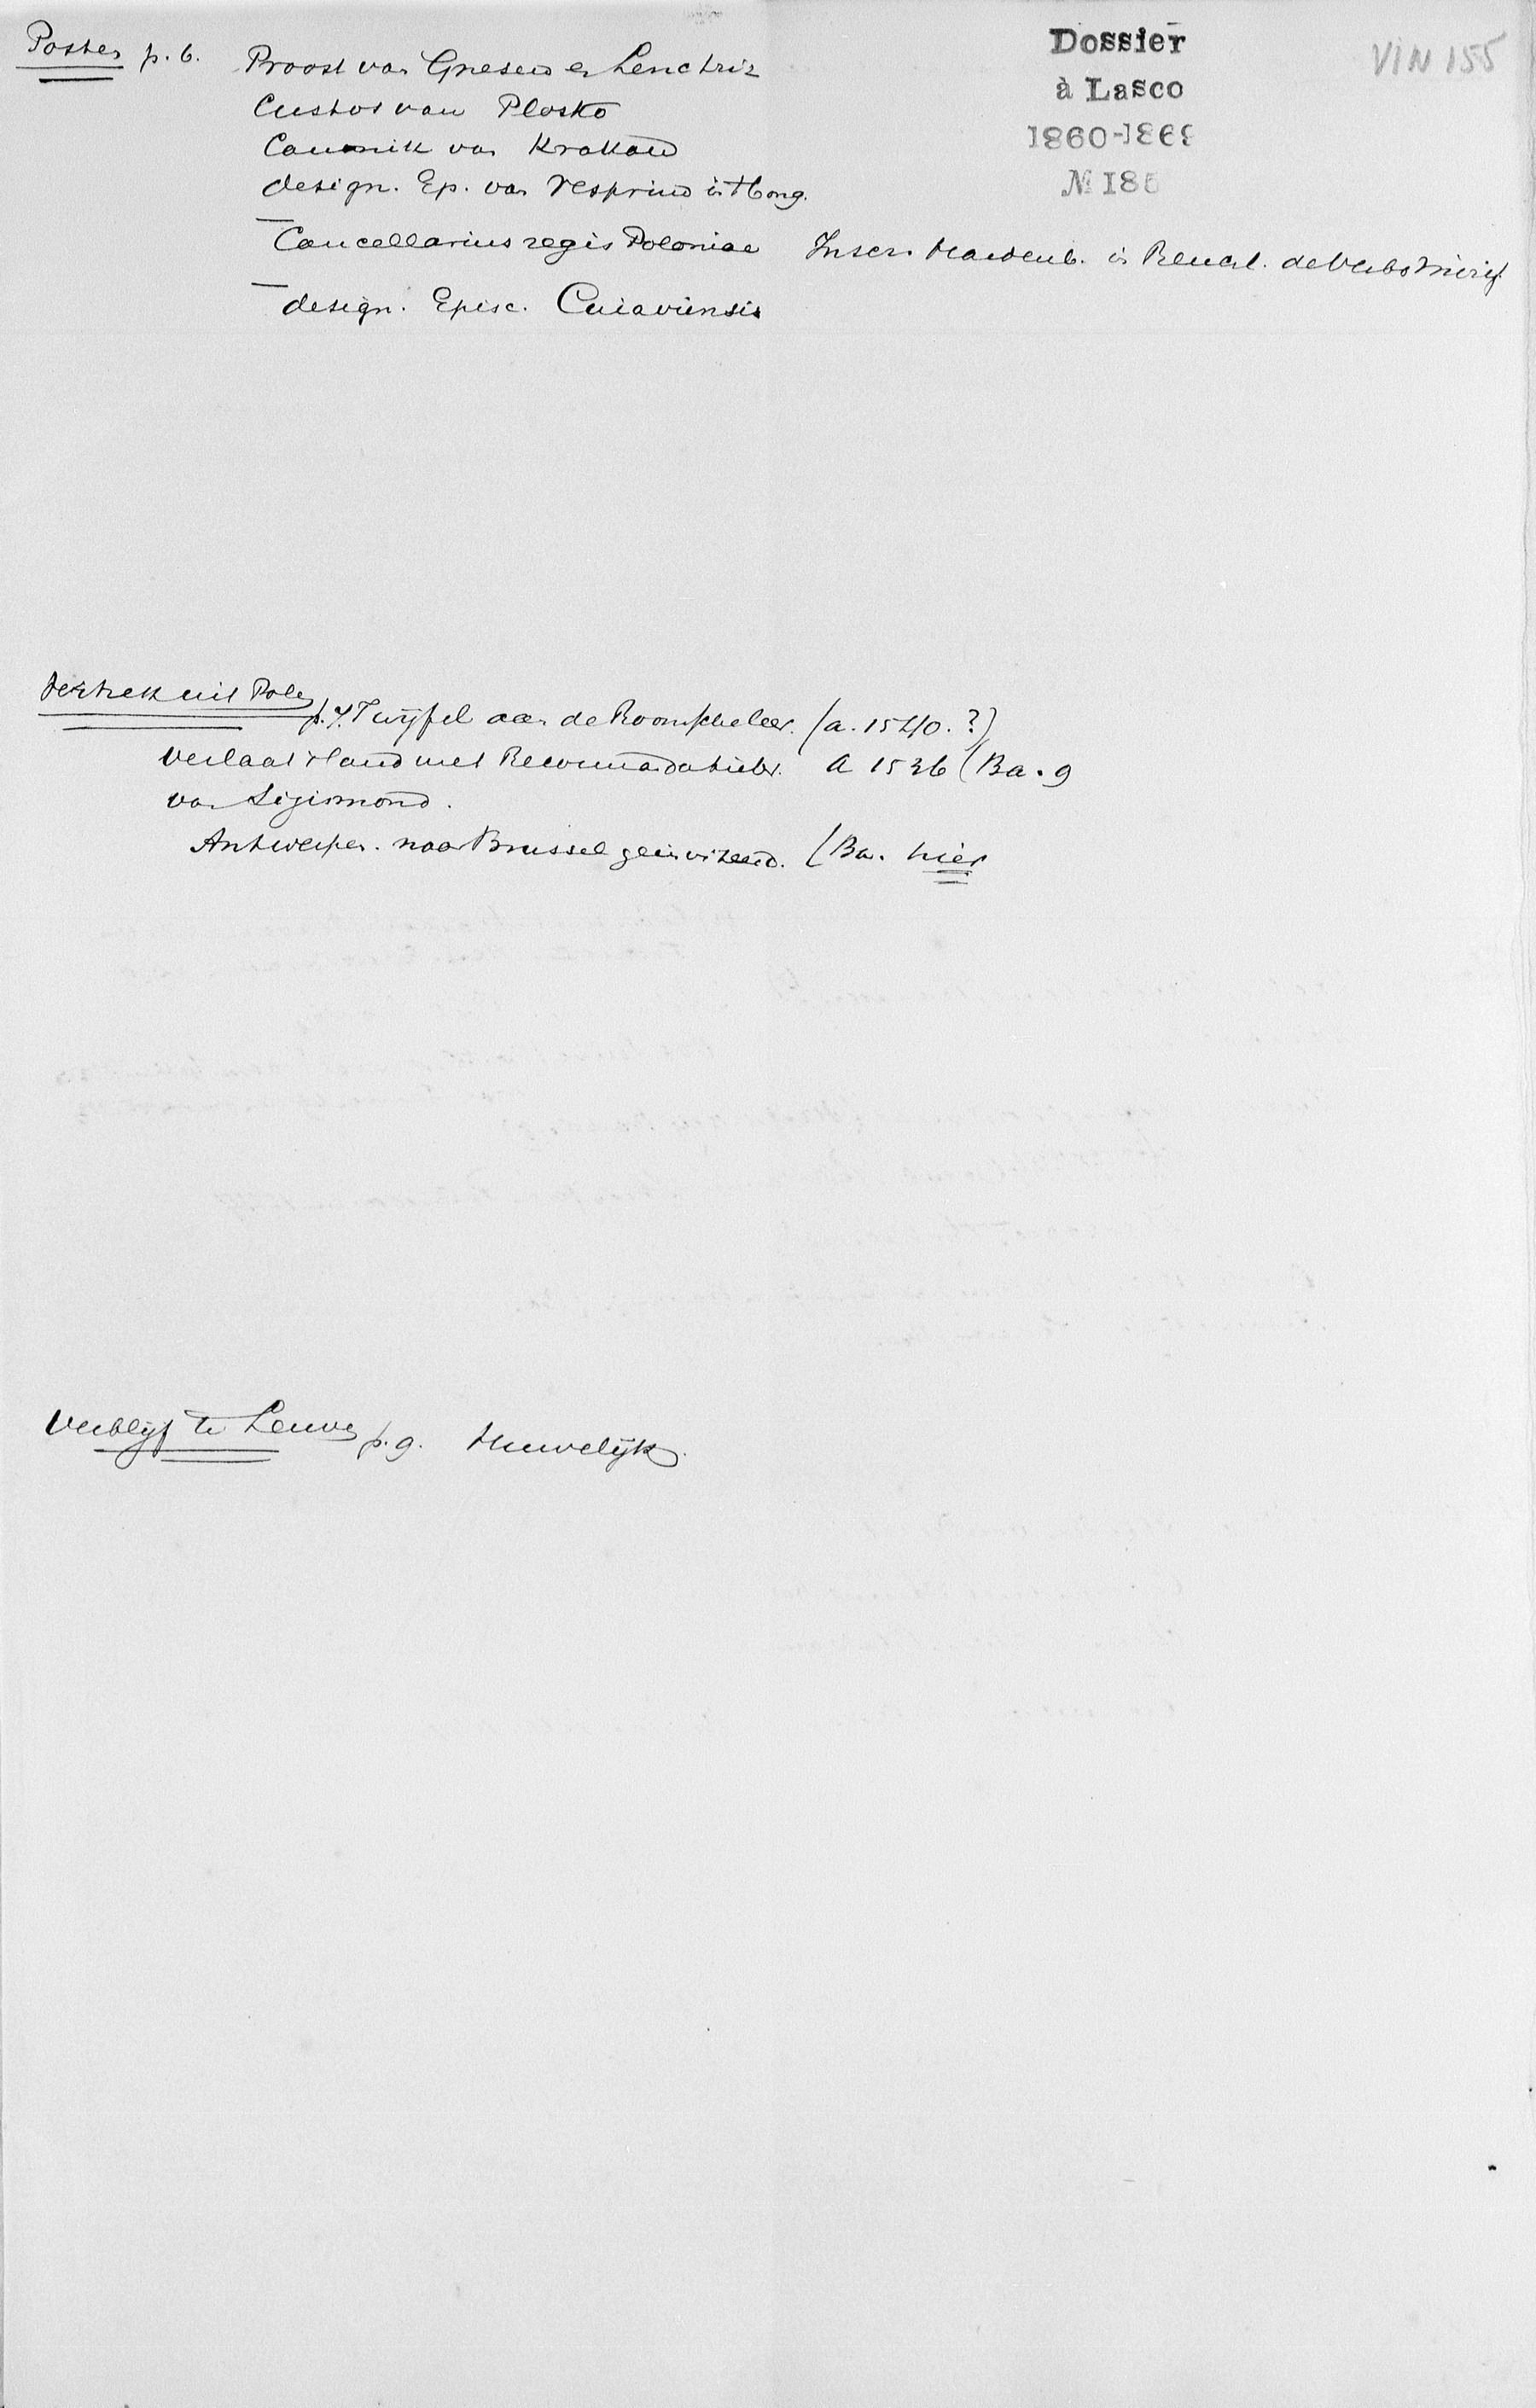 Dossier
à Lasco
1860-1869
№ 185
VIN 155
Posten p. 6. Proost van Gnesen en Lenctriz
Custos van Plosko
Canonik van Krakau
design. Ep. van Vesprim in Hong.
Cancellarius regis Poloniae Inscr. Hardenb. in
design. Episc. Cuiaviensis
Vertrek uit Polen p. 7. Twijfel aan de Roomsche leer. (a. 1540. ?)
Verlaat 't land met Recommandatiebr. A 1536 (Ba. 9
van Sigismond.
Antwerpen. naar Brussel geinviteerd. (Ba. hier
Verblijf te Leuven p. 9. Huwelijk.